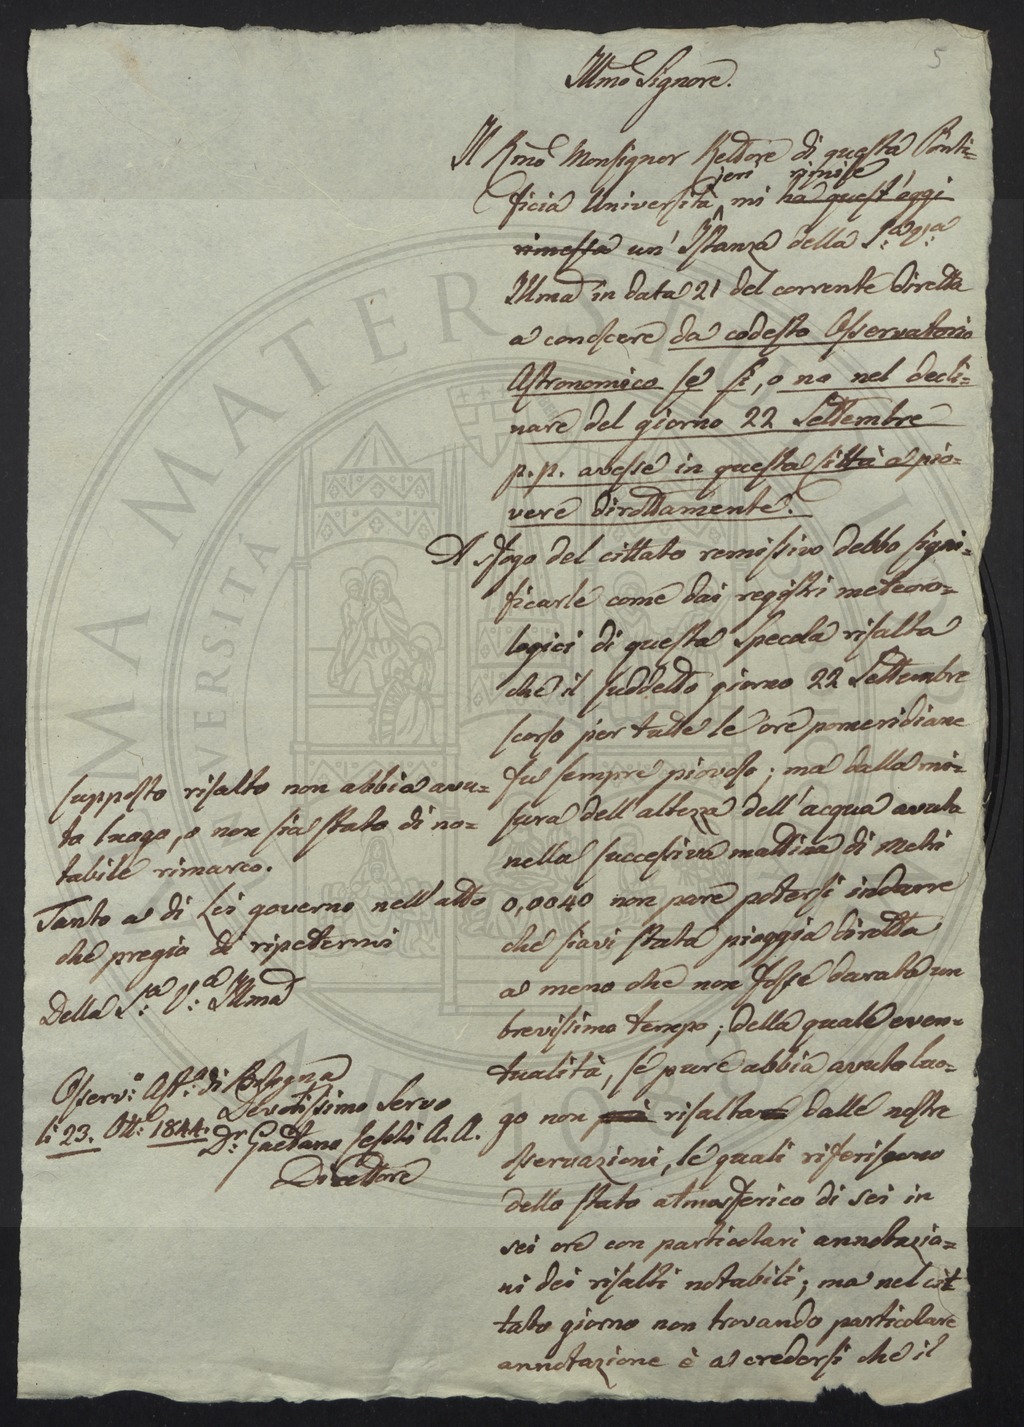 5
Illmo Signore.
Il Rmo Monsignor Rettore di questa Ponti=
ieri rimise
ficia Università mi ha quest'oggi
rimessa un' Istanza della S.a V.a
Illma in data 21 del corrente diretta
a conoscere da codesto Osservatorio
Astronomico se sì, o no nel decli=
nare del giorno 22 Settembre
p.p. avesse in questa città a pio=
vere dirottamente.
A sfogo del cittato remissivo debbo signi=
ficarle come dai registri meteoro=
logici di questa Specola risulta
che il suddetto giorno 22 Settembre
scorso per tutte le ore pomeridiane
fu sempre piovoso; ma dalla mi=
sura dell'altezza dell'acqua avuta
nella successiva mattina di Metri
0,0040 non pare potersi indurre
che siavi stata pioggia dirotta
a meno che non fosse durata un
brevissimo tempo; della quale even=
tualità, se pure abbia avuto luo=
go non risulta dalle nostre
osservazioni, le quali riferiscono
dello stato atmosferico di sei in
sei ore con particolari annotazio=
ni dei risalti notabili; ma nel cit
tato giorno non trovando particolare
annotazione è a credersi che il
supposto risalto non abbia avu=
to luogo, o non sia stato di no=
tabile rimarco.
Tanto a di Lei governo nell'atto
che pregio di ripetermi
Della S.a V.a Illma
Osserv.o Ast.o di Bologna
li 23. Ott.e 1844.
Devotissimo Servo
Dr. Gaetano Ceschi A. A.
Direttore
ALMA MATER STUDIORUM
UNIVERSITÀ
A.D. 1088